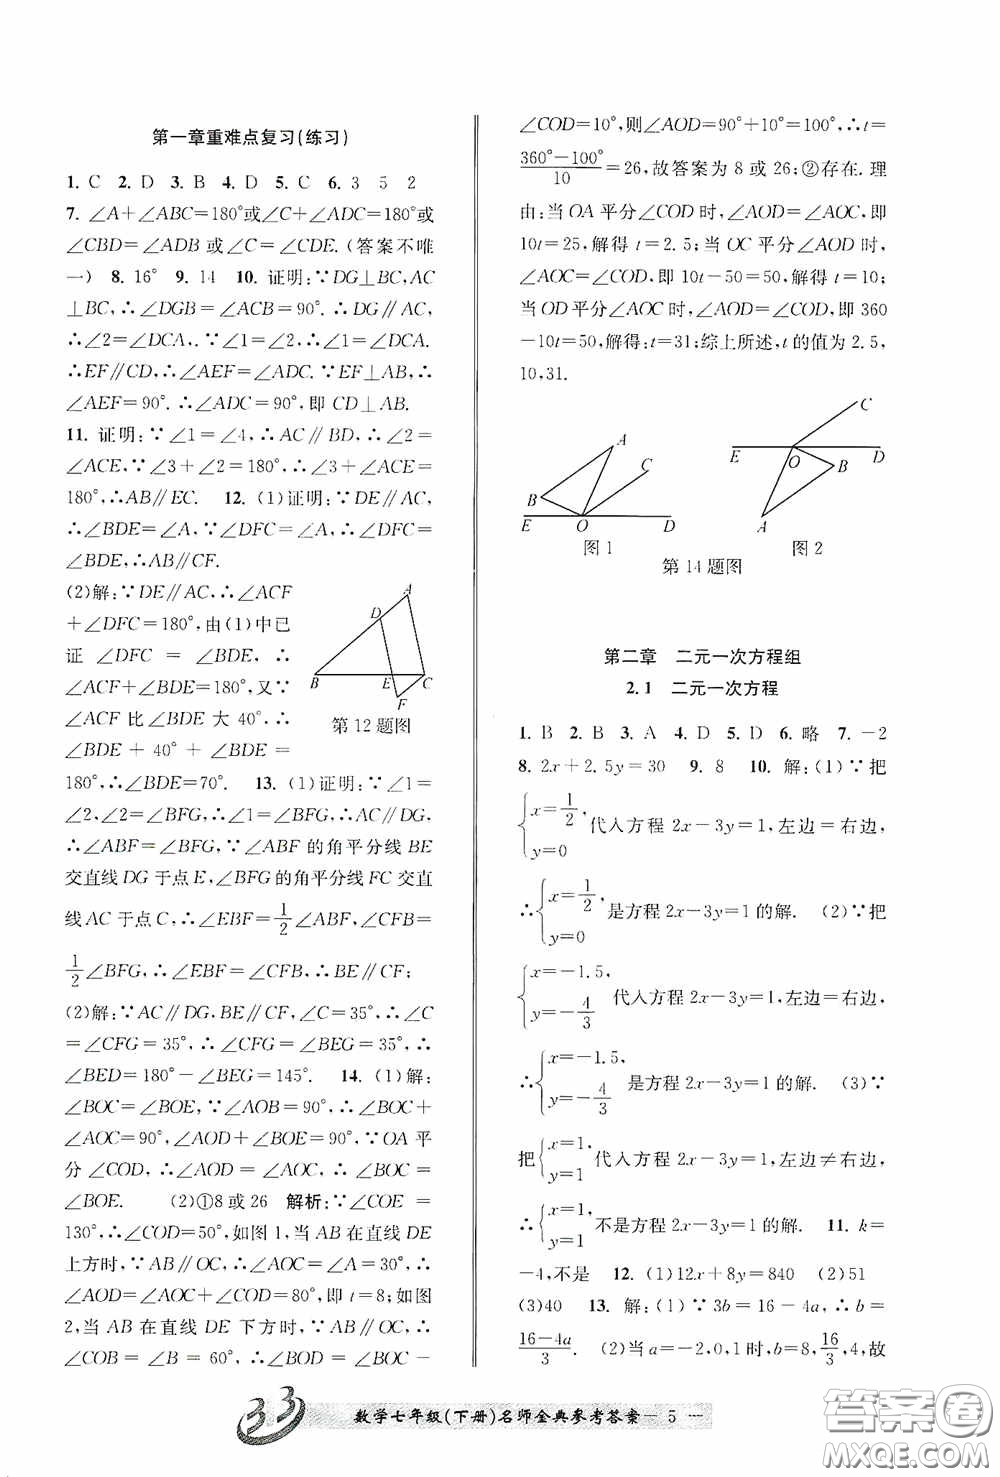 第一章重难点复习(练习)
1. C 2. D 3. B 4. D 5. C 6. 3 5 2
7. ∠A+∠ABC=180°或∠C+∠ADC=180°或
∠CBD=∠ADB或∠C=∠CDE.(答案不唯
一) 8. 16° 9. 14 10. 证明:∵DG⊥BC,AC
⊥BC,∴∠DGB=∠ACB=90°.∴DG∥AC,
∴∠2=∠DCA,.∵∠1=∠2,∴∠1=∠DCA.
∴EF∥CD,∴∠AEF=∠ADC.∵EF⊥AB,∴
∠AEF=90°.∴∠ADC=90°,即CD⊥AB.
11. 证明:∵∠1=∠4,∴AC∥BD,∴∠2=
∠ACE,∵∠3+∠2=180°,∴∠3+∠ACE=
180°,∴AB∥EC. 12. (1)证明:∵DE∥AC,
∴∠BDE=∠A,∵∠DFC=∠A,∴∠DFC=
∠BDE,∴AB∥CF.
(2)解:∵DE∥AC,∴∠ACF
+∠DFC=180°,由(1)中已
证∠DFC=∠BDE,∴
∠ACF+∠BDE=180°,又∵
∠ACF比∠BDE大40°,∴
∠BDE+40°+∠BDE=
180°,∴∠BDE=70°. 13. (1)证明:∵∠1=
A
D
B
E
C
F
第12题图
∠2、∠2=∠BFG,∴∠1=∠BFG,∴AC∥DG,
∴∠ABF=∠BFG,∵∠ABF的角平分线BE
交直线DG于点E,∠BFG的角平分线FC交直
线AC于点C,∴∠EBF=1/2∠ABF,∠CFB=
1/2∠BFG,∴∠EBF=∠CFB,∴BE∥CF;
(2)解:∵AC∥DG,BE∥CF,∠C=35°,∴∠C
=∠CFG=35°,∴∠CFG=∠BEG=35°,∴
∠BED=180°-∠BEG=145°. 14. (1)解:
∠BOC=∠BOE,∵∠AOB=90°,∴∠BOC+
∠AOC=90°,∠AOD+∠BOE=90°,∵OA平
分∠COD,∴∠AOD=∠AOC,∴∠BOC=
∠BOE. (2)①8或26 解析:∵∠COE=
130°,∴∠COD=50°,如图1,当AB在直线DE
上方时,∵AB∥OC,∴∠AOC=∠A=30°,∴
∠AOD=∠AOC+∠COD=80°,即t=8;如图
2,当AB在直线DE下方时,∵AB∥OC,∴
∠COB=∠B=60°,∴∠BOD=∠BOC-
∠COD=10°,则∠AOD=90°+10°=100°,∴t=
(360°-100°)/10=26,故答案为8或26;②存在.理
由:当OA平分∠COD时,∠AOD=∠AOC,即
10t=25,解得t=2.5;当OC平分∠AOD时,
∠AOC=∠COD,即10t-50=50,解得t=10;
当OD平分∠AOC时,∠AOD=∠COD,即360
-10t=50,解得:t=31;综上所述,t的值为2.5,
10,31.
A
C
B
E O D
图1
C
E O B D
A
图2
第14题图
第二章 二元一次方程组
2.1 二元一次方程
1. B 2. B 3. A 4. D 5. D 6. 略 7. -2
8. 2x+2.5y=30 9. 8 10. 解:(1)∵把
{x=1/2, y=0 代入方程2x-3y=1,左边=右边,
∴{x=1/2, y=0 是方程2x-3y=1的解. (2)∵把
{x=-1.5, y=-4/3 代入方程2x-3y=1,左边=右边,
∴{x=-1.5, y=-4/3 是方程2x-3y=1的解. (3)∵
把{x=1, y=1 代入方程2x-3y=1,左边≠右边,
∴{x=1, y=1 不是方程2x-3y=1的解. 11. k=
-4,不是 12. (1)12x+8y=840 (2)51
(3)40 13. 解:(1)∵3b=16-4a,∴b=
(16-4a)/3. (2)当a=-2,0,1时,b=8,16/3,4,故
33
数学七年级(下册)名师金典参考答案— 5 —
答案圈
MXQE.COM